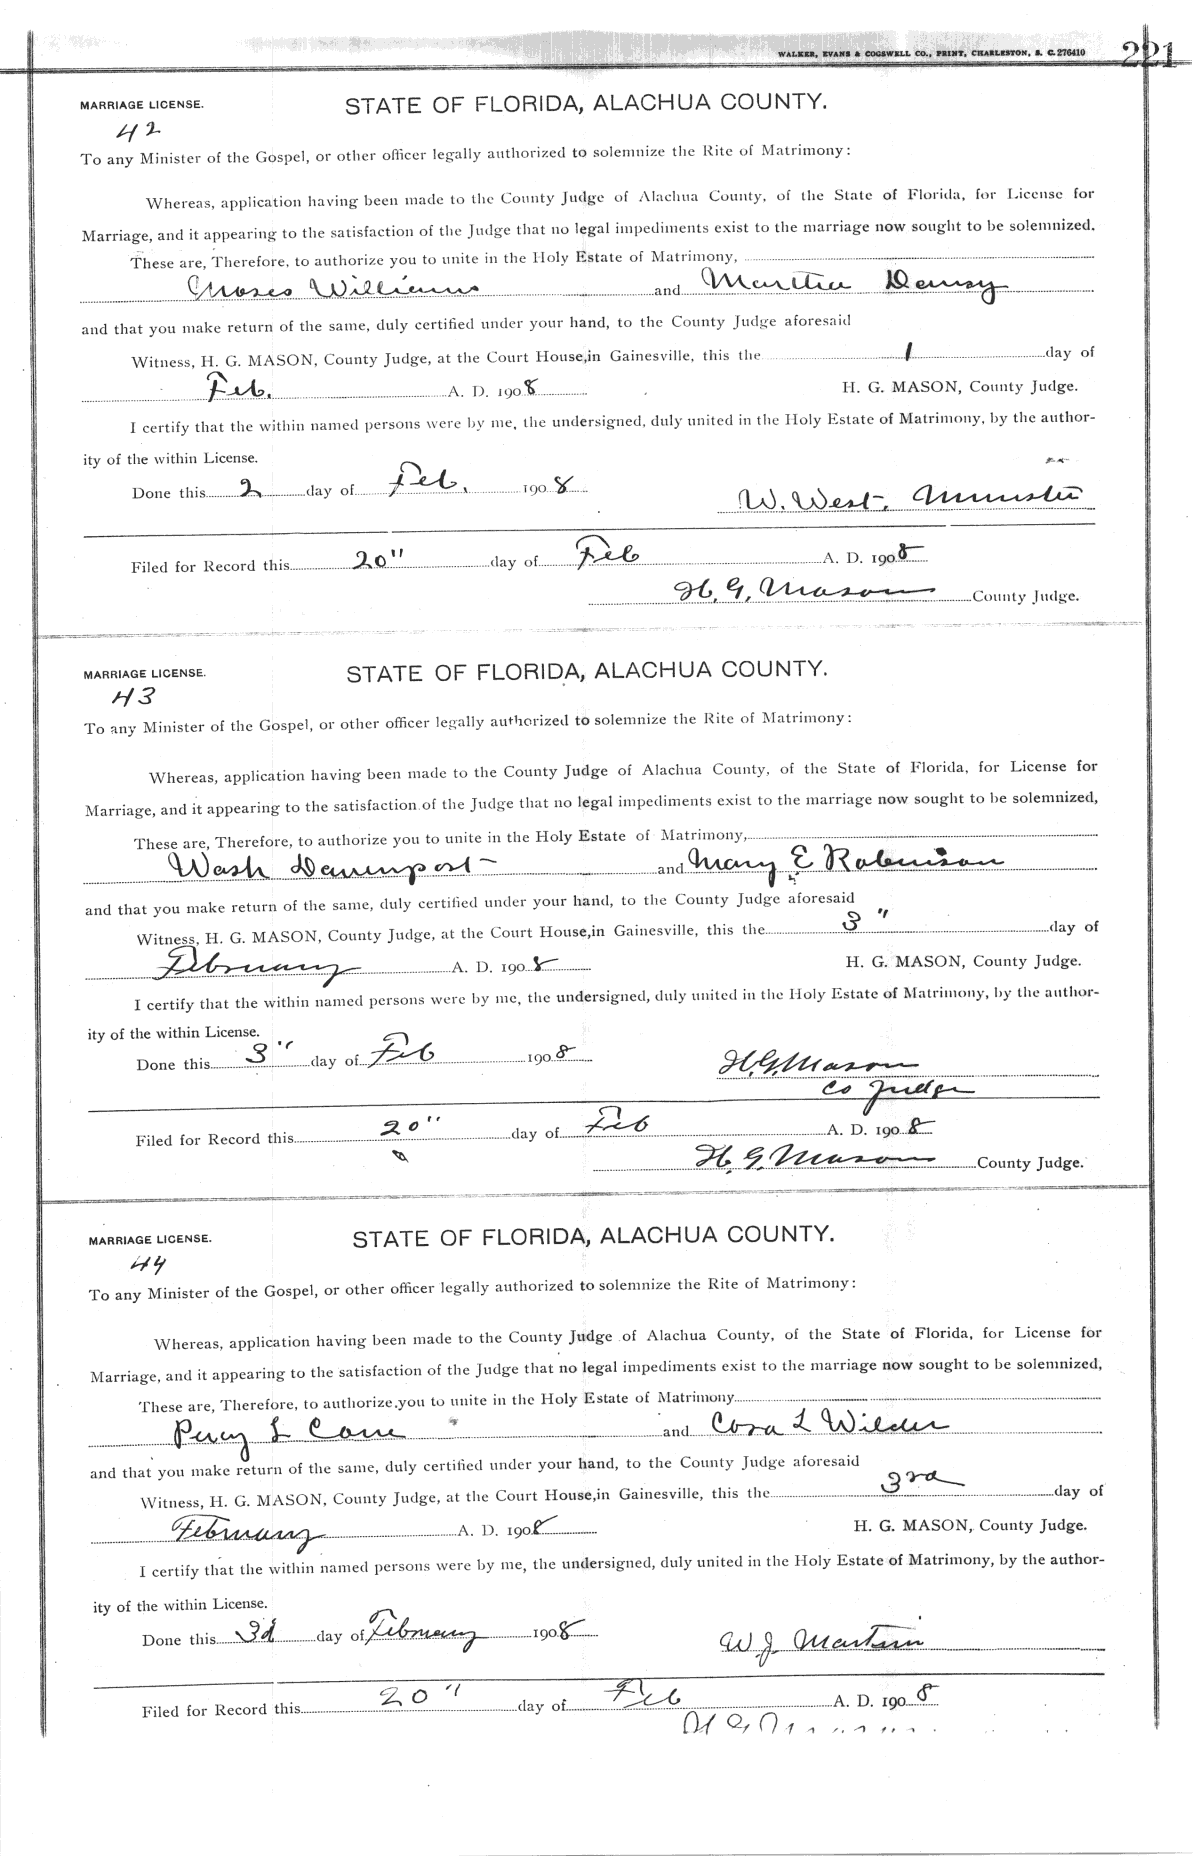 WALKER, EVANS & COGSWELL CO., PRINT, CHARLESTON, S. C. 276410 221
MARRIAGE LICENSE. STATE OF FLORIDA, ALACHUA COUNTY.
42
To any Minister of the Gospel, or other officer legally authorized to solemnize the Rite of Matrimony:
Whereas, application having been made to the County Judge of Alachua County, of the State of Florida, for License for
Marriage, and it appearing to the satisfaction of the Judge that no legal impediments exist to the marriage now sought to be solemnized.
These are, Therefore, to authorize you to unite in the Holy Estate of Matrimony,
Moses Williams and Martha
and that you make return of the same, duly certified under your hand, to the County Judge aforesaid
Witness, H. G. MASON, County Judge, at the Court House, in Gainesville, this the 1 day of
Feb. A. D. 1908 H. G. MASON, County Judge.
I certify that the within named persons were by me, the undersigned, duly united in the Holy Estate of Matrimony, by the author-
ity of the within License.
Done this 2 day of Feb. 1908 W. West, Minister
Filed for Record this 20" day of Feb A. D. 1908
H. G. Mason County Judge.
MARRIAGE LICENSE. STATE OF FLORIDA, ALACHUA COUNTY.
43
To any Minister of the Gospel, or other officer legally authorized to solemnize the Rite of Matrimony:
Whereas, application having been made to the County Judge of Alachua County, of the State of Florida, for License for
Marriage, and it appearing to the satisfaction of the Judge that no legal impediments exist to the marriage now sought to be solemnized,
These are, Therefore, to authorize you to unite in the Holy Estate of Matrimony,
Wash Davenport and Mary E Robinson
and that you make return of the same, duly certified under your hand, to the County Judge aforesaid
Witness, H. G. MASON, County Judge, at the Court House, in Gainesville, this the 3" day of
February A. D. 1908 H. G. MASON, County Judge.
I certify that the within named persons were by me, the undersigned, duly united in the Holy Estate of Matrimony, by the author-
ity of the within License.
Done this 3" day of Feb 1908 H. G. Mason
Co Judge
Filed for Record this 20" day of Feb A. D. 1908
H. G. Mason County Judge.
MARRIAGE LICENSE. STATE OF FLORIDA, ALACHUA COUNTY.
44
To any Minister of the Gospel, or other officer legally authorized to solemnize the Rite of Matrimony:
Whereas, application having been made to the County Judge of Alachua County, of the State of Florida, for License for
Marriage, and it appearing to the satisfaction of the Judge that no legal impediments exist to the marriage now sought to be solemnized,
These are, Therefore, to authorize you to unite in the Holy Estate of Matrimony
Percy L and Cora L Wilder
and that you make return of the same, duly certified under your hand, to the County Judge aforesaid
Witness, H. G. MASON, County Judge, at the Court House, in Gainesville, this the 3rd day of
February A. D. 1908 H. G. MASON, County Judge.
I certify that the within named persons were by me, the undersigned, duly united in the Holy Estate of Matrimony, by the author-
ity of the within License.
Done this 3d day of February 1908 W J Martin
Filed for Record this 20" day of Feb A. D. 1908